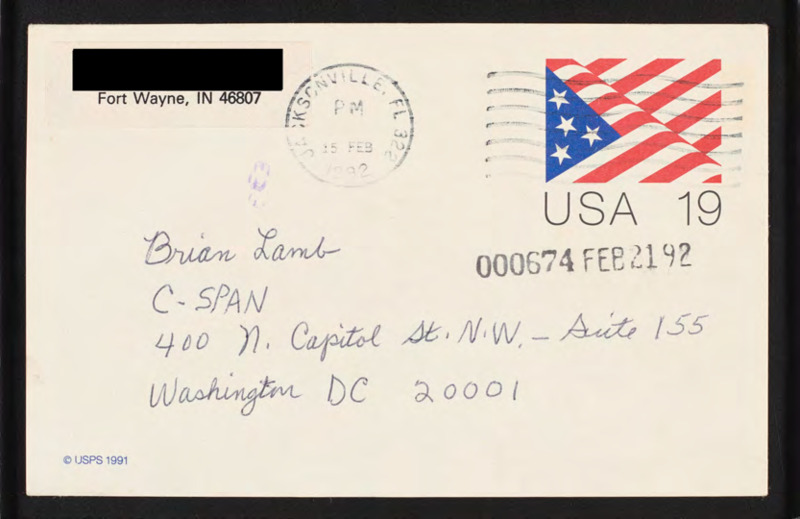 Fort Wayne, IN 46807
JACKSONVILLE, FL 322
PM
15 FEB
1992
USA 19
000674 FEB 21 92
Brian Lamb
C-SPAN
400 N. Capitol St. N.W. - Suite 155
Washington DC 20001
© USPS 1991